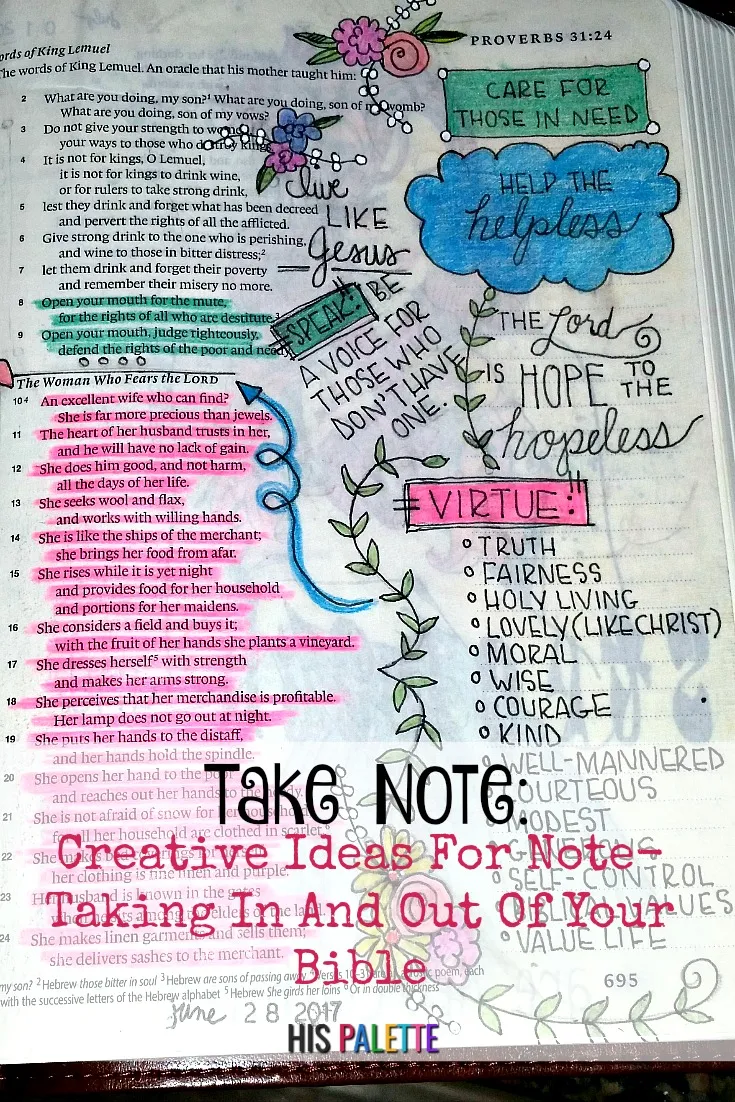 ords of King Lemuel
The words of King Lemuel. An oracle that his mother taught him:
2 What are you doing, my son?¹ What are you doing, son of my womb?
What are you doing, son of my vows?
3 Do not give your strength to women,
your ways to those who destroy kings.
4 It is not for kings, O Lemuel,
it is not for kings to drink wine,
or for rulers to take strong drink,
5 lest they drink and forget what has been decreed
and pervert the rights of all the afflicted.
6 Give strong drink to the one who is perishing,
and wine to those in bitter distress;²
7 let them drink and forget their poverty
and remember their misery no more.
8 Open your mouth for the mute,
for the rights of all who are destitute.³
9 Open your mouth, judge righteously,
defend the rights of the poor and needy.
The Woman Who Fears the LORD
10⁴ An excellent wife who can find?
She is far more precious than jewels.
11 The heart of her husband trusts in her,
and he will have no lack of gain.
12 She does him good, and not harm,
all the days of her life.
13 She seeks wool and flax,
and works with willing hands.
14 She is like the ships of the merchant;
she brings her food from afar.
15 She rises while it is yet night
and provides food for her household
and portions for her maidens.
16 She considers a field and buys it;
with the fruit of her hands she plants a vineyard.
17 She dresses herself⁵ with strength
and makes her arms strong.
18 She perceives that her merchandise is profitable.
Her lamp does not go out at night.
19 She puts her hands to the distaff,
and her hands hold the spindle.
20 She opens her hand to the poor
and reaches out her hands to the needy.
21 She is not afraid of snow for her household,
for all her household are clothed in scarlet.⁶
22 She makes bed for
her clothing is fine linen and purple.
23 Her husband is known in the gates
when he sits among the elders of the land.
24 She makes linen garments and sells them;
she delivers sashes to the merchant.
my son? ² Hebrew those bitter in soul ³ Hebrew are sons of passing away ⁴ Verses 10–31 are an acrostic poem, each
with the successive letters of the Hebrew alphabet ⁵ Hebrew She girds her loins ⁶ Or in double thickness
june 28 2017
PROVERBS 31:24
CARE FOR
THOSE IN NEED
HELP THE
helpless
live
LIKE
Jesus
SPEAK: BE
A VOICE FOR
THOSE WHO
DON'T HAVE
ONE.
THE Lord
IS HOPE TO
THE
hopeless
VIRTUE:
TRUTH
FAIRNESS
HOLY LIVING
LOVELY (LIKE CHRIST)
MORAL
WISE
COURAGE
KIND
WELL-MANNERED
COURTEOUS
MODEST
SELF-CONTROL
VALUES
VALUE LIFE
695
Take Note:
Creative Ideas For Note-
Taking In And Out Of Your
Bible
HIS PALETTE